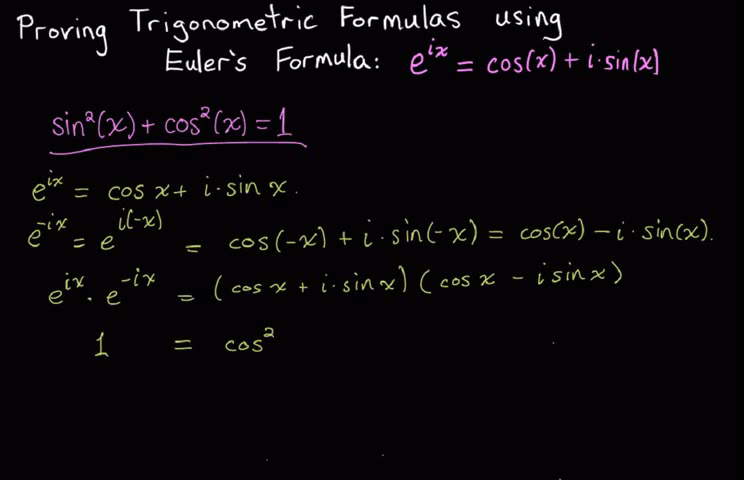 Proving Trigonometric Formulas using
Euler's Formula: e^{ix} = cos(x) + i·sin(x)
sin²(x) + cos²(x) = 1
e^{ix} = cos x + i·sin x.
e^{-ix} = e^{i(-x)} = cos(-x) + i·sin(-x) = cos(x) - i·sin(x).
e^{ix}·e^{-ix} = (cos x + i·sin x)(cos x - i sin x)
1 = cos²